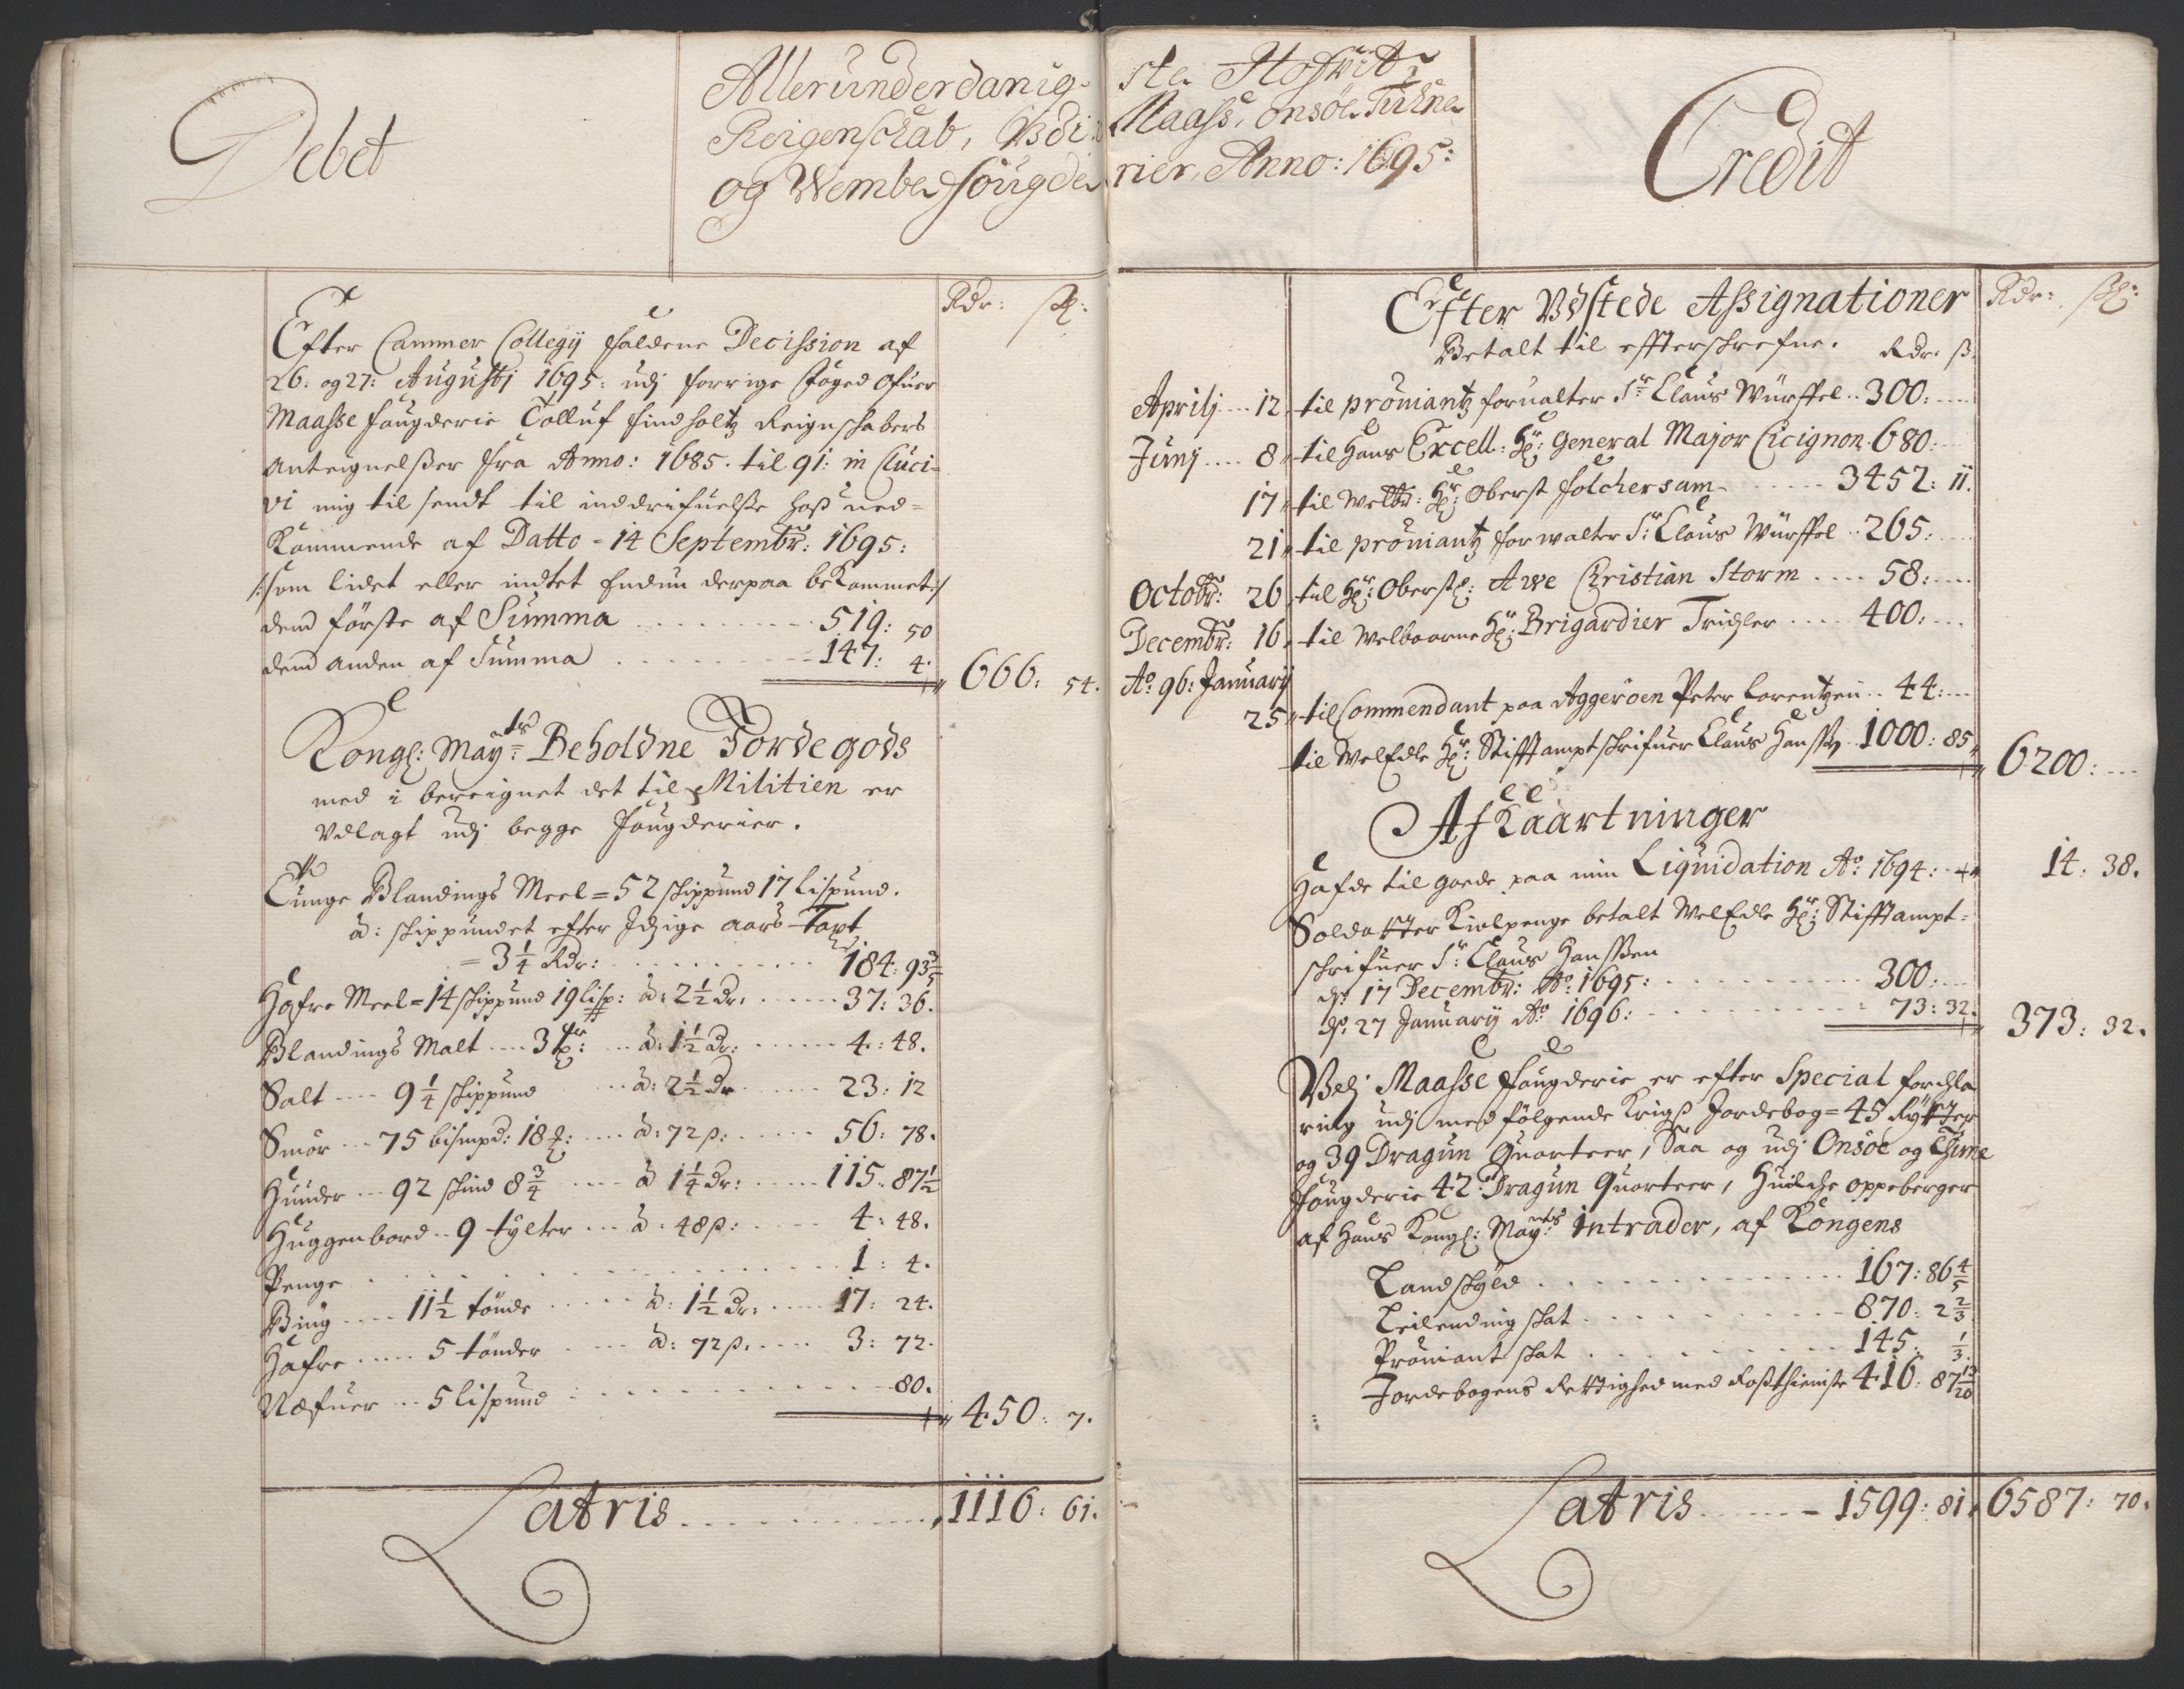 Debet
Allerunderdanig-
Reigenschab, Vdi
og Wembe fougde
Rdr: ß:
Efter Cammer Collegij faldene Decission af
26: og 27: Augustj 1695: udj forrige Foged ofuer
Maasse fougderie Tolluf findholtz Reignschabers
Anteignelsser fra Anno: 1685. til 91: in Cluci-
vi mig til sendt til inddrifuelsse hoss ved-
kommende af Datto - 14 Septembr: 1695:
/:som lidet eller indtet Endnu derpaa bekommet:/
dend förste af Summa 519: 50
dend anden af Summa 147: 4. 666: 54.
Kongl: Mayts: Beholdne Jordegods
med i bereignet det til Militien er
Vdlagt udj begge fougderier.
Tunge Blandings Meel = 52 schippund 17 lispund.
à: schippundet efter Itzige aars Taxt
= 3 1/4 Rdr: 184: 93 3/5
Hafre Meel = 14 schippund 19 lisp: à: 2 1/2 dr: 37: 36.
Blandings Malt 3 à: 1 1/2 dr: 4: 48.
Salt 9 1/4 schippund à: 2 1/2 dr 23: 12
Smör 75 bismpd: 18 à: 72 ß: 56: 78.
Huuder 92 schind 8 3/4 à 1 1/4 dr: 115: 87 1/2
Huggenbord 9 tylter à: 48 ß: 4: 48.
Penge 1: 4.
Biug 11 1/2 tönde à: 1 1/2 dr: 17: 24.
Hafre 5 tönder à: 72 ß. 3: 72.
Næfuer 5 lispund 80. 450: 7.
Latris 1116: 61.
ste
Maasse, Onsöe, Tuhne
rier, Anno: 1695:
Credit
Rdr: ß:
Efter Vdstede Assignationer
Betalt til effterschrefne. Rdr. ß.
Aprilj 12. til proviantz forualter Sr: Claus Würffel 300:
Junj 8 til Hans Excell: Hr: General Major Cicignon 680:
17 til Welb: Hr: Oberst Folchersam 3452: 11.
21 til proviantz forwalter Sr: Claus Würffel 265:
Octobr: 26 til Hr: Oberstl: Awe Christian Storm 58:
Decembr: 16 til Welbaarne Hr: Brigardier Tridzler 400:
Ao: 96: Januarij
25 til Commendant paa Aggerøen Peter Lorentzen 44:
til WelEdle Hr: Stifftamptschrifuer Claus Hanssen 1000: 85 6200:
Afkaartninger
Hafde til gode paa min Liquidation Ao: 1694: 14: 38.
Soldatter Kiolpenge betalt WelEdle Hr: Stifftampt-
schrifuer Sr: Claus Hanssen
do: 17 Decembr: Ao: 1695: 300:
do: 27 Januarij Ao 1696: 73: 32. 373: 32.
Vdj Maasse fougderie er efter Special forkla
ring udj med fölgende Krigs Jordebog = 45 Rÿtter
og 39 Dragun Quarteer, Saa og udj Onsöe og Thune
fougderie 42: Dragun Quarteer, Huilcke oppeberger
af Hans Kongl: Mayts: Intrader, af Kongens
Landskyld 167: 86 4/5
Leilending skat 870: 2 2/3
Proviant skat 145: 1/3
Jordebogens Rettighed med Rosthieniste 416: 87 13/20
Latris 1599: 81. 6587: 70.